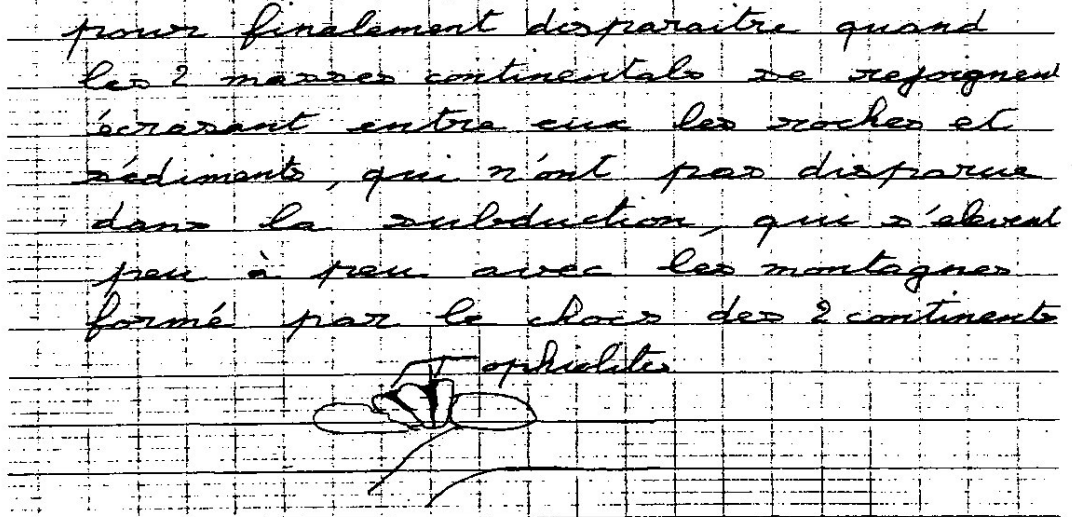 pour finalement disparaitre quand
les 2 masses continentals se rejoignent
écrasant entre eux les roches et
sédiments, qui n'ont pas disparue
dans la subduction, qui s'élevent
peu à peu avec les montagnes
formé par le chocs des 2 continents
ophiolites